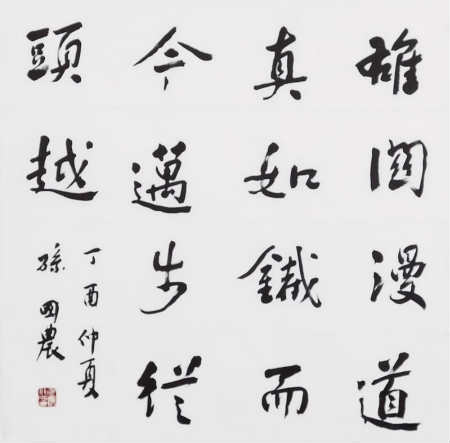 雄關漫道
真如鐵而
今邁步從
頭越
丁酉仲夏
孫國農